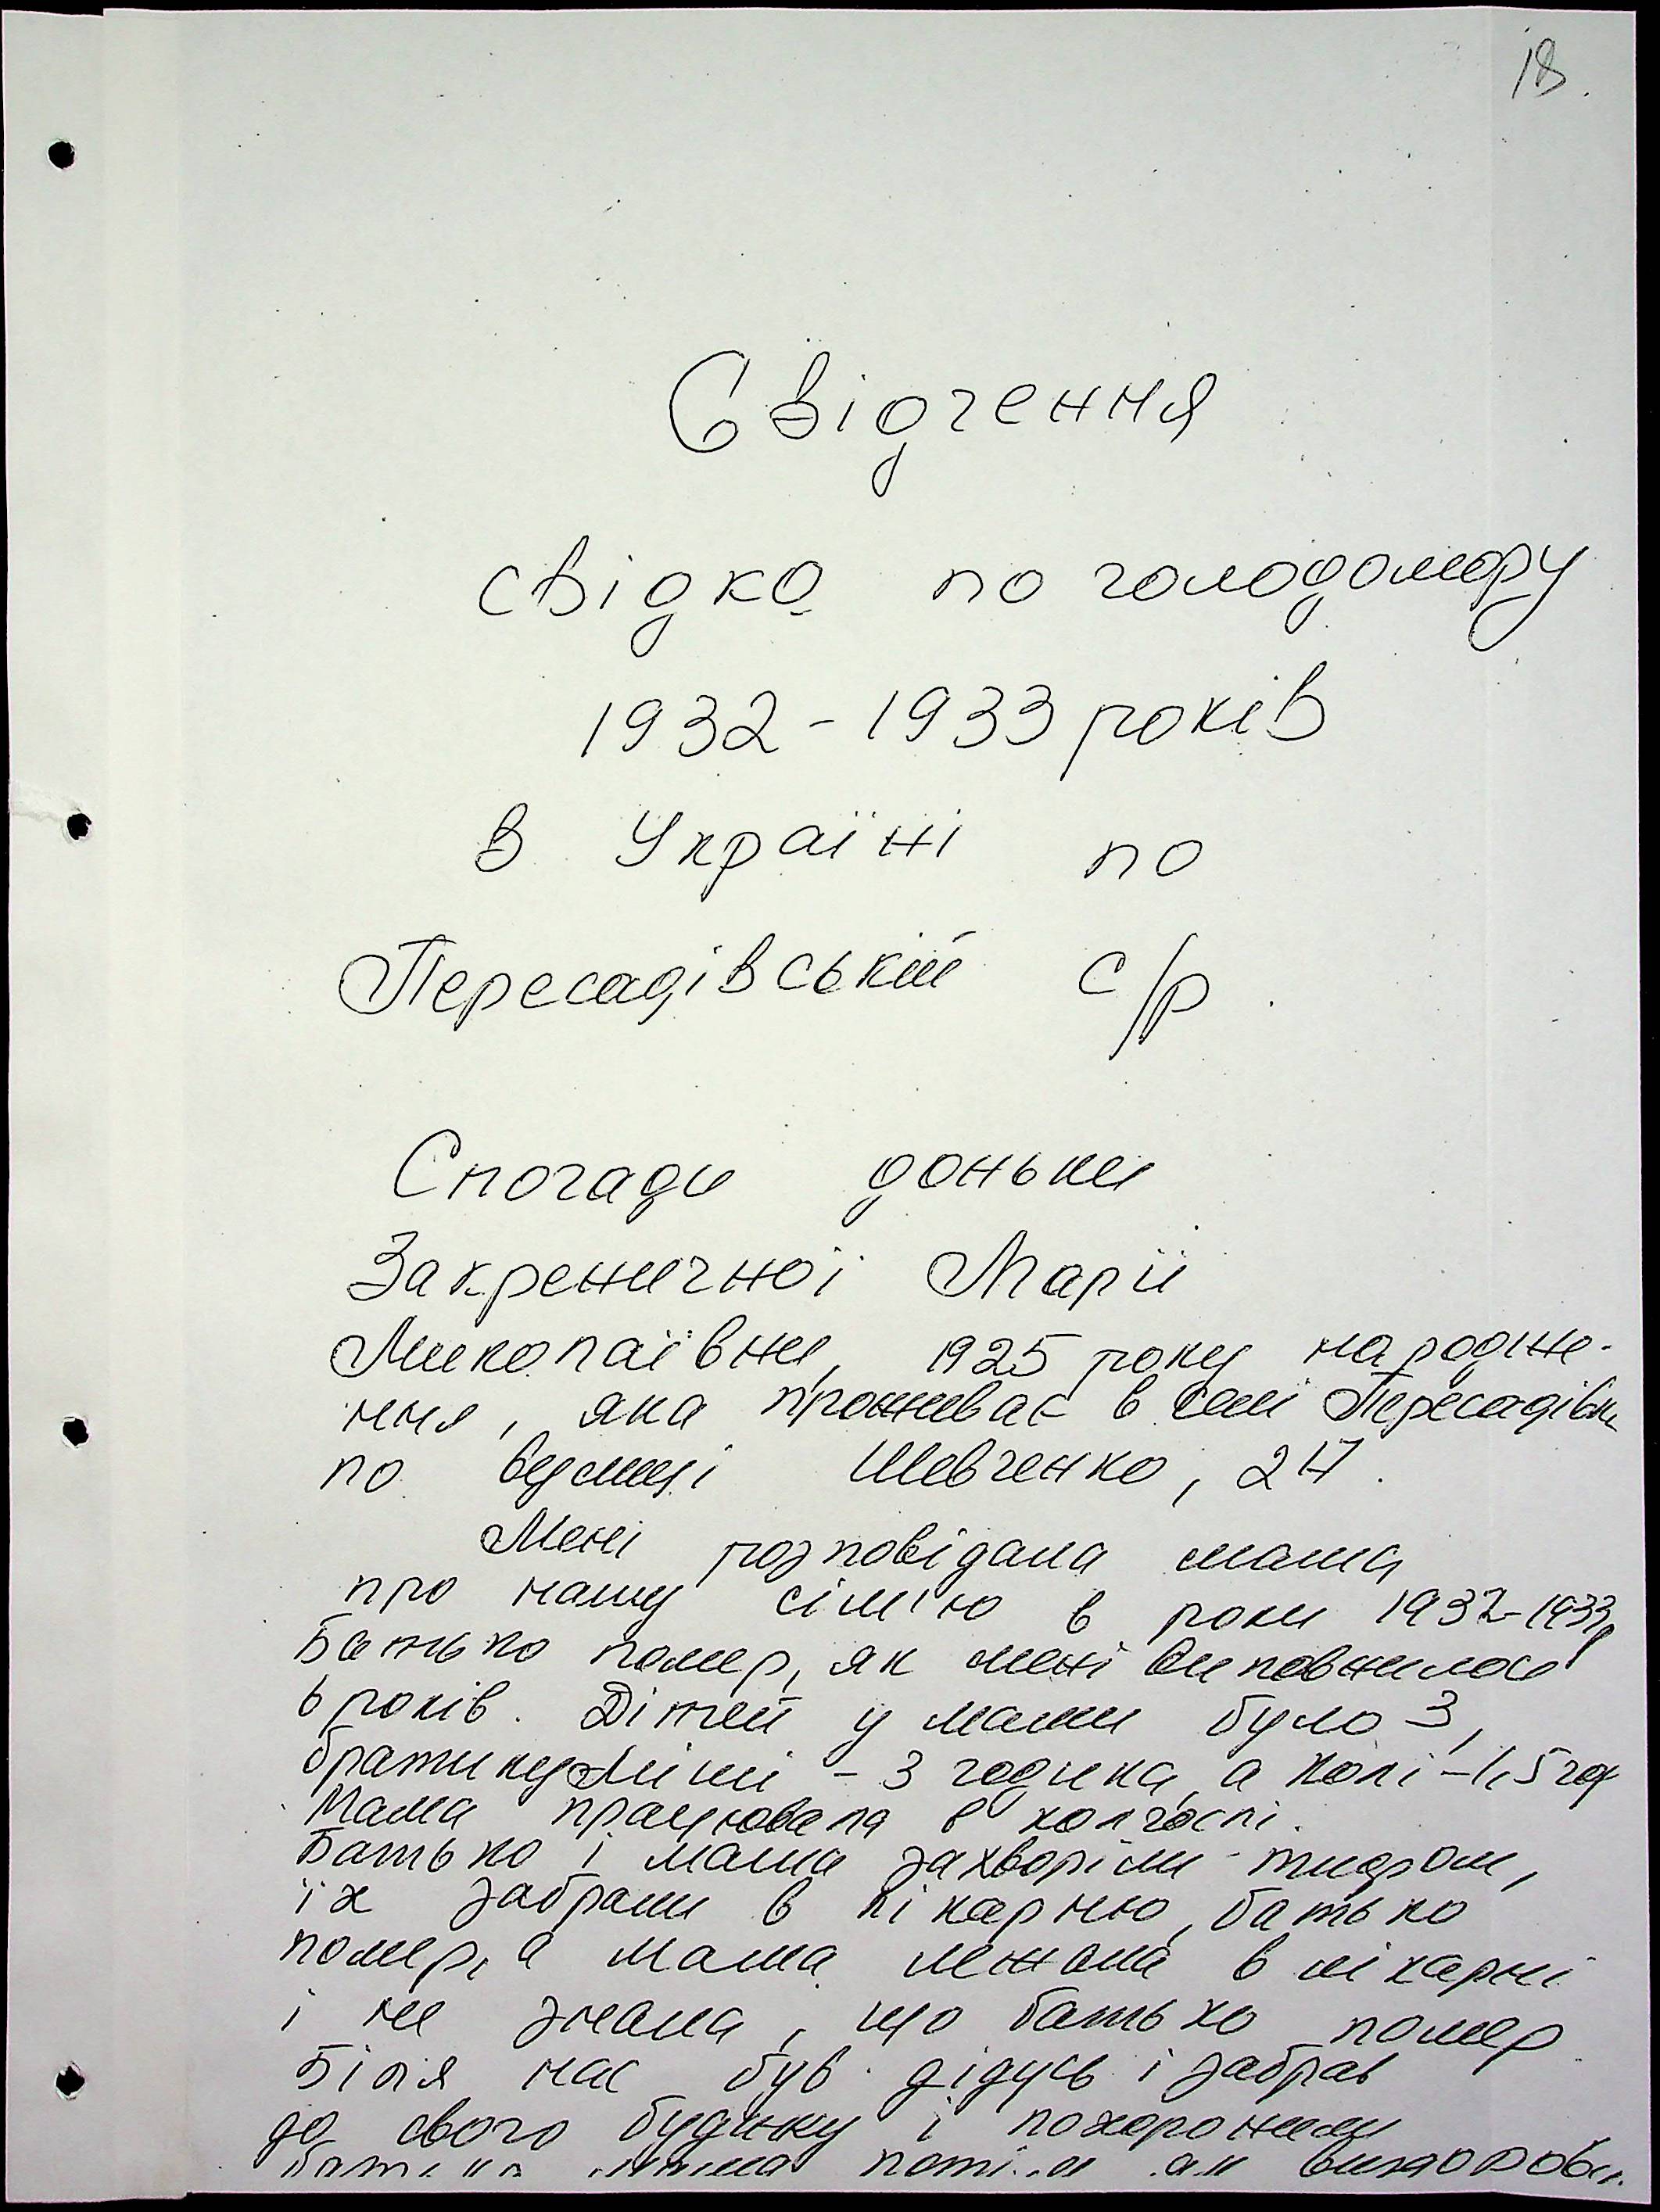 18.
Свідчення
свідка по голодомору
1932-1933 років
в Україні по
Пересадівській с/р.
Спогади доньки
Закреничної Марії
Миколаївни, 1925 року народже-
ння, яка проживає в селі Пересадівка
по вулиці Шевченко, 27.
Мені розповідала мама
про нашу сім'ю в роки 1932-1933р
Батько помер, як мені виповнилось
6 років. Дітей у мами було 3,
братику Міші - 3 годика, а Колі - 1,5 год
Мама працювала в колгоспі.
Батько і мама захворіли тифом,
їх забрали в лікарню, батько
помер, а мама лежала в лікарні
і не знала, що батько помер.
Біля нас був дідусь і забрав
до свого будинку і похоронили
потім як